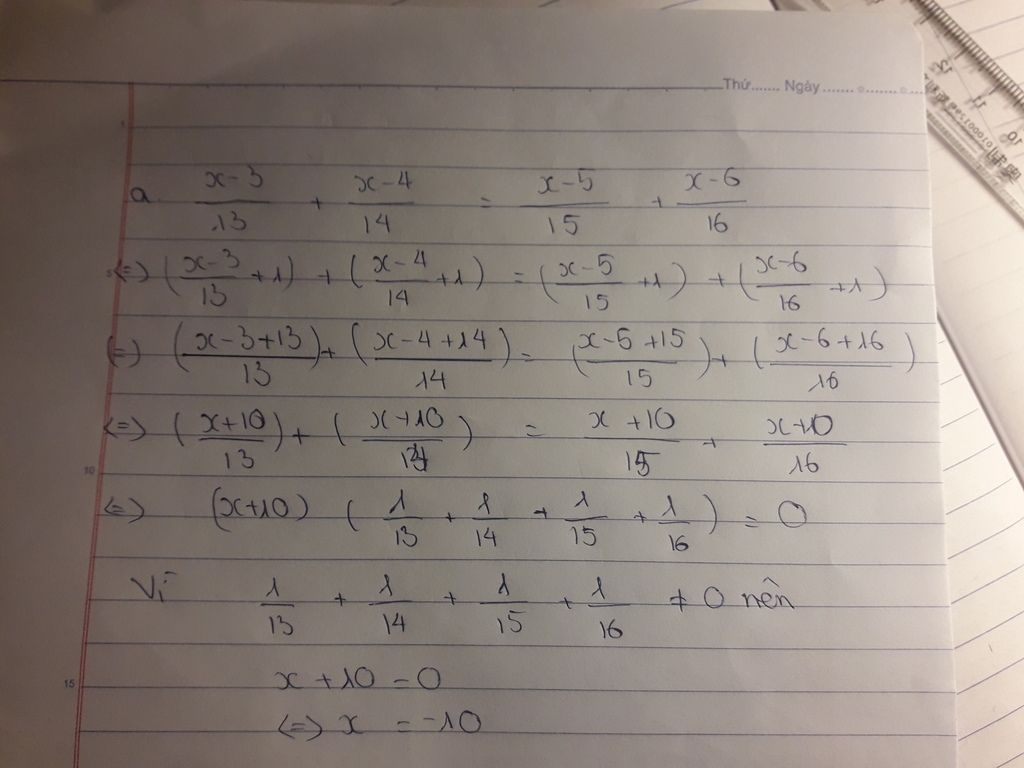 Thứ....... Ngày.......
a. (x-3)/13 + (x-4)/14 = (x-5)/15 + (x-6)/16
5 <=> ((x-3)/13 + 1) + ((x-4)/14 + 1) = ((x-5)/15 + 1) + ((x-6)/16 + 1)
<=> ((x-3+13)/13) + ((x-4+14)/14) = ((x-5+15)/15) + ((x-6+16)/16)
<=> ((x+10)/13) + ((x+10)/14) = (x+10)/15 + (x+10)/16
10
<=> (x+10) (1/13 + 1/14 + 1/15 + 1/16) = 0
Vì 1/13 + 1/14 + 1/15 + 1/16 ≠ 0 nên
15 x + 10 = 0
<=> x = -10